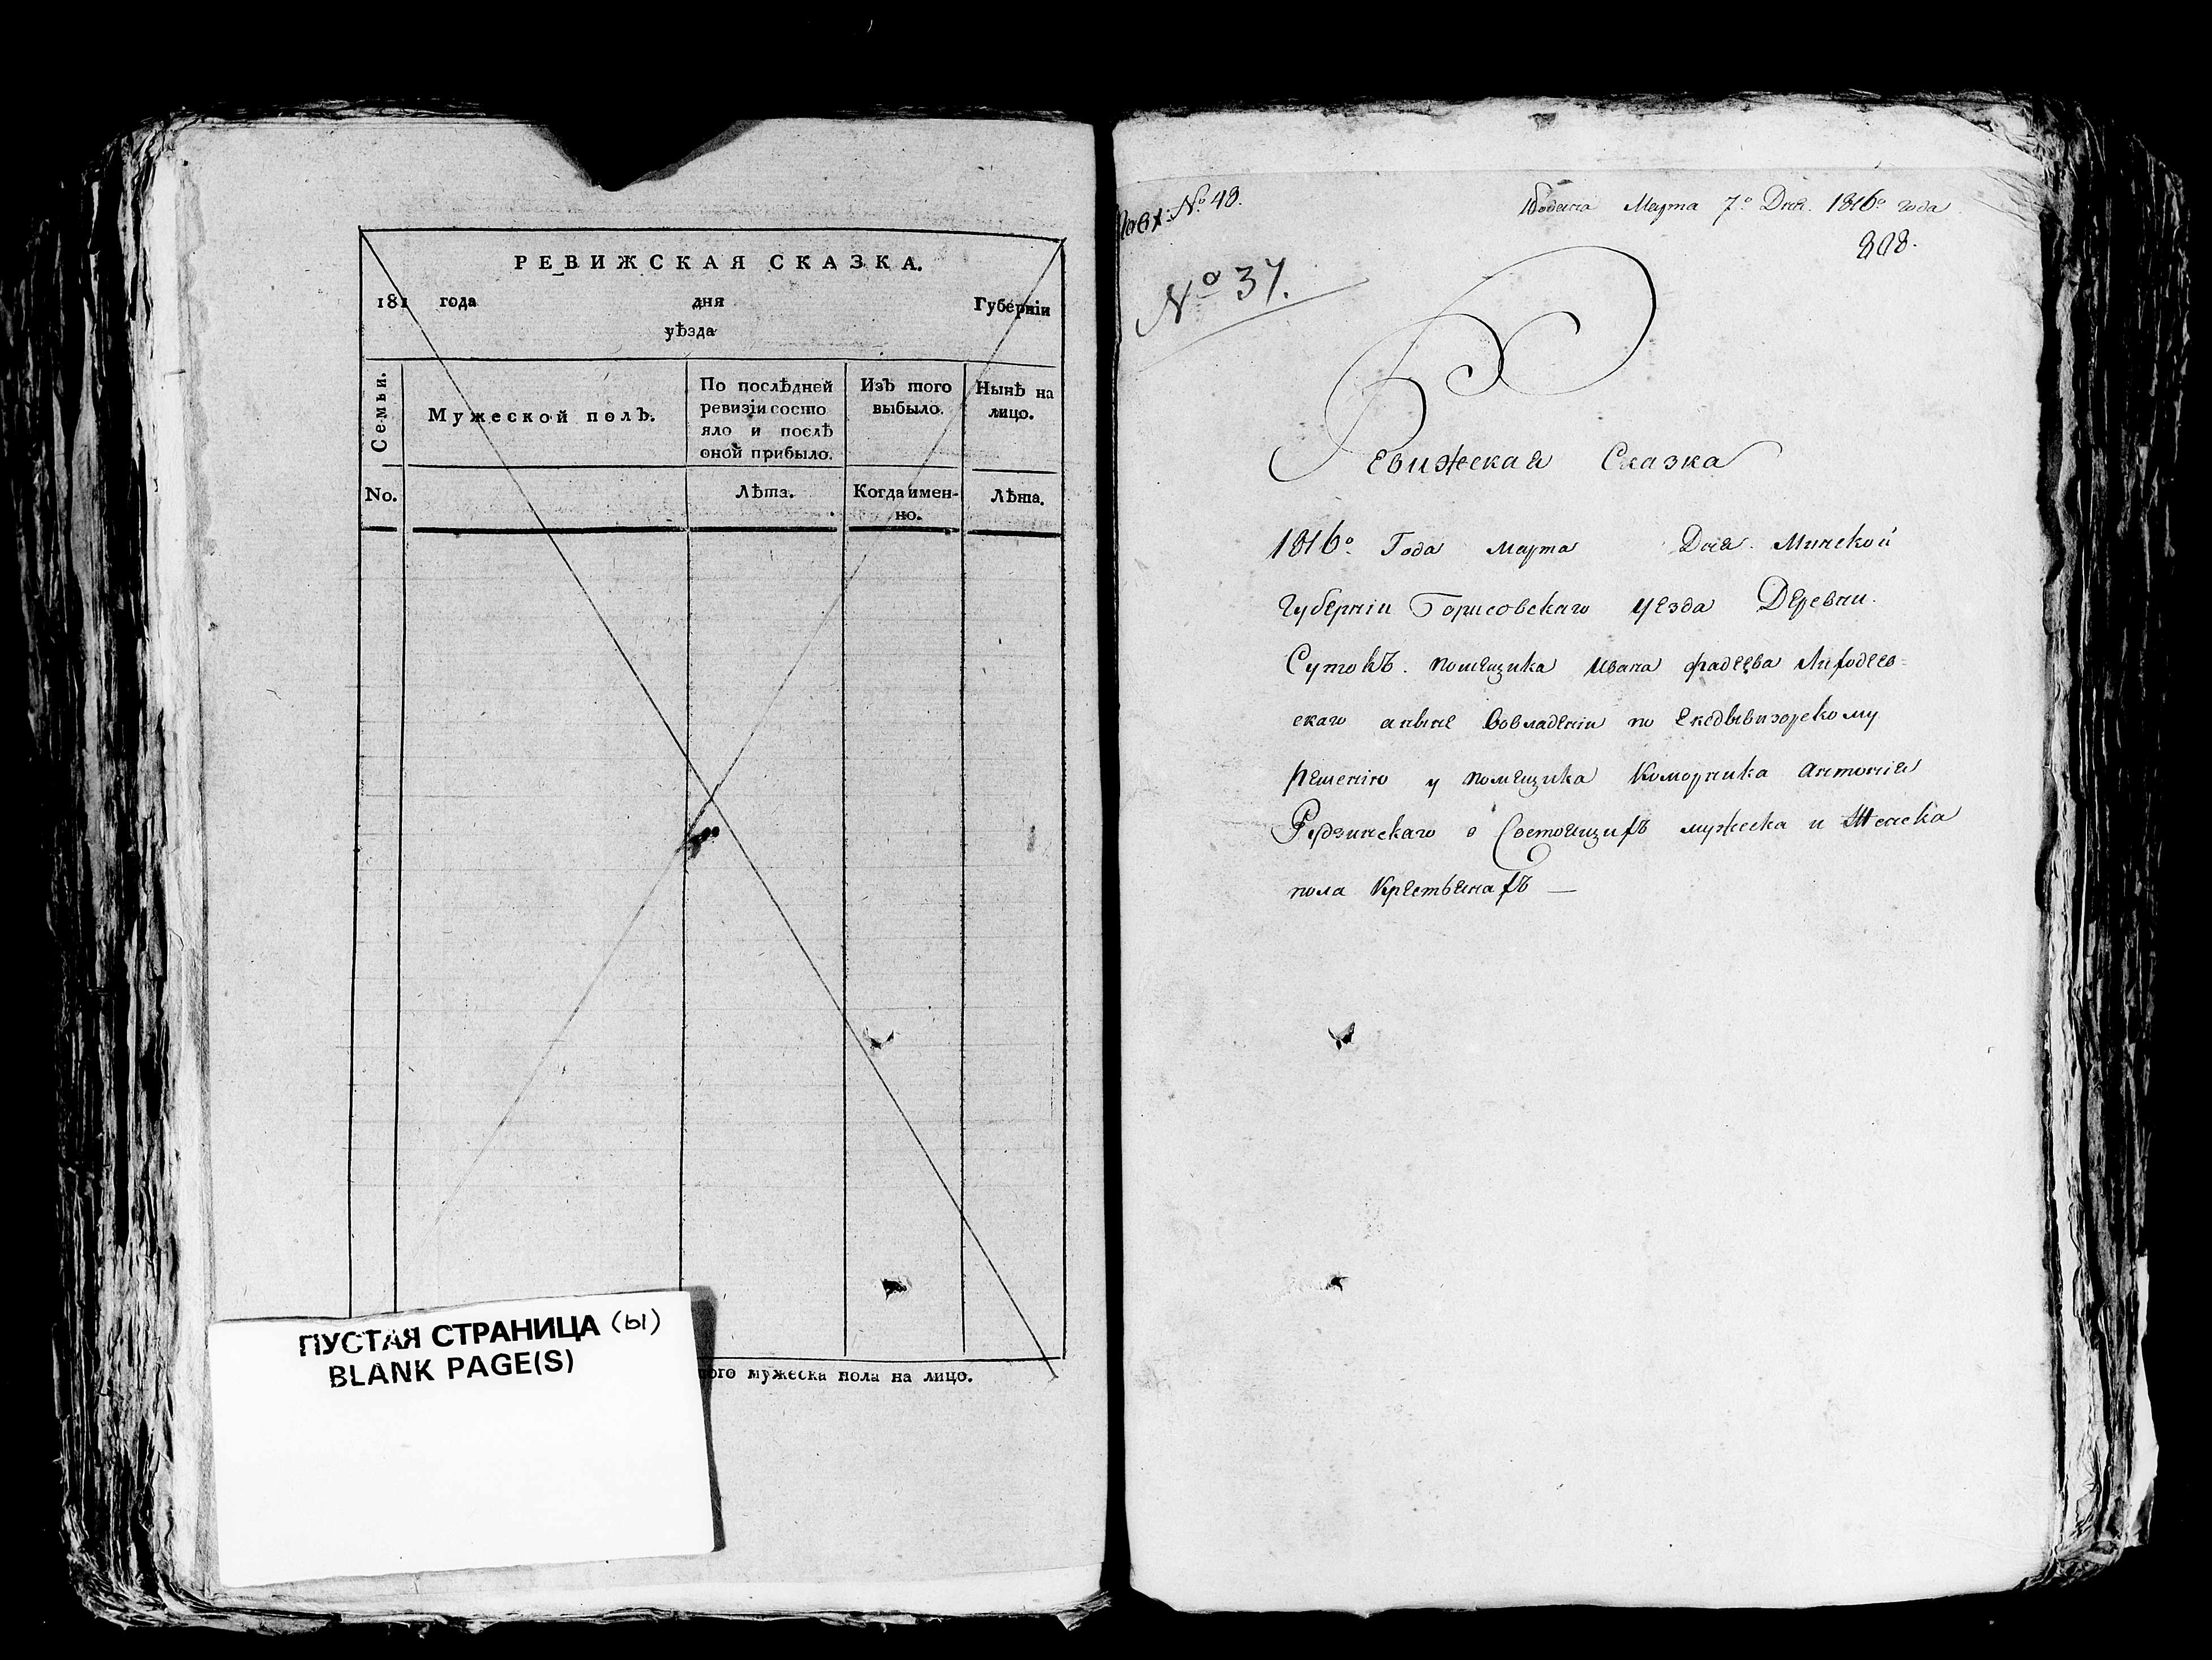 РЕВИЖСКАЯ СКАЗКА.
181 года дня Губерніи
уѣзда
Семьи.
Мужеской полъ.
По послѣдней
ревизіи состо
яло и послѣ
оной прибыло.
Изъ того
выбыло.
Нынѣ на
лицо.
No.
Лѣта.
Когда имен-
но.
Лѣта.
ого мужеска пола на лицо.
ПУСТАЯ СТРАНИЦА (ы)
BLANK PAGE(S)
№ 48.
Подана Марта 7º Дня. 1816º года
808.
№ 37.
Ревижская Сказка
1816º Года марта Дня. Минской
Губерніи Борисовскаго уезда Деревни.
Сутокъ. помещика Ивана фадеева
скаго аныне Вовладеніи по Ексдывизорскому
решенію у помещика Коморника Антонія
Рудзинскаго о Состоящихъ мужеска и Женска
пола Крестьянахъ —